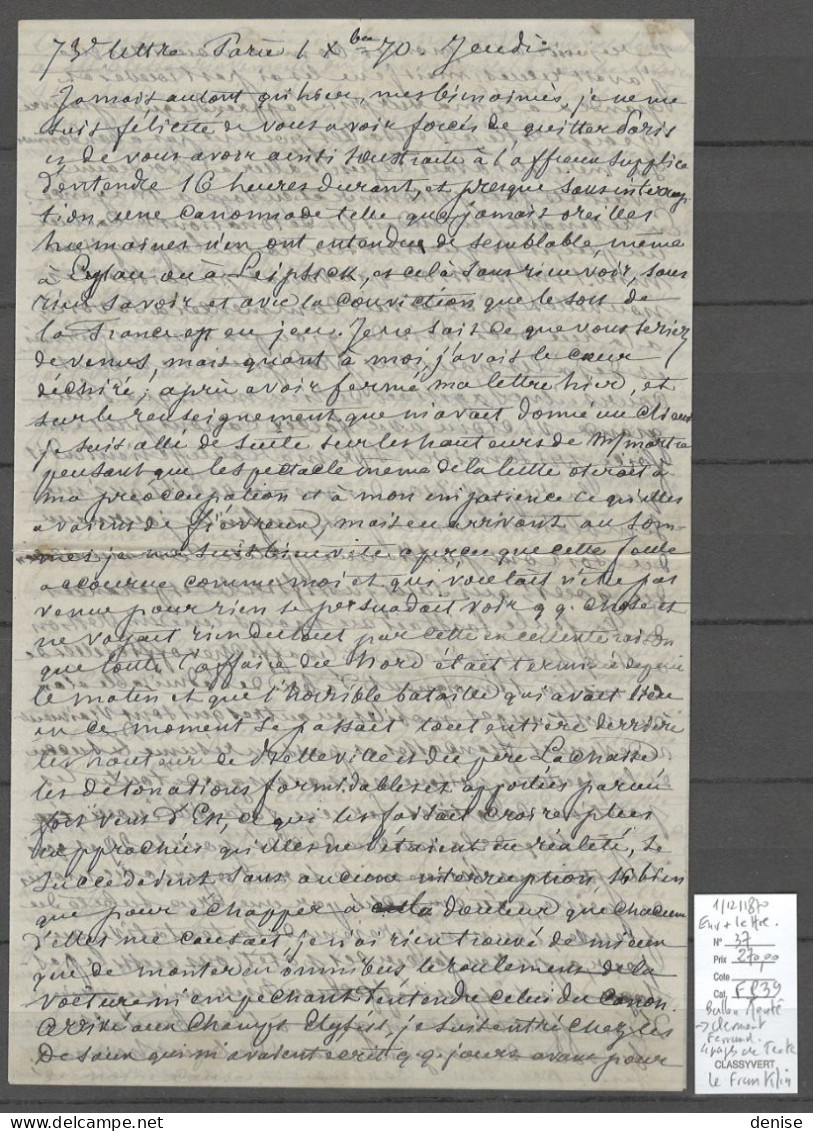 73e lettre Paris 1 Xbre 70 Jeudi
Jamais autant qu'hier, mes bien aimés, je ne me
suis félicité de vous avoir forcés de quitter Paris
et de vous avoir ainsi soustraits à l'affreux supplice
d'entendre 16 heures durant, et presque sans interrup
tion, une canonnade telle que jamais oreilles
humaines n'en ont entendu de semblable, même
à Eylau ou à Leipsick, et celà sans rien voir, sans
rien savoir et avec la conviction que le sort de
la France est en jeu. Je ne sais ce que vous seriez
devenus, mais quant à moi, j'avais le cœur
déchiré ; après avoir fermé ma lettre hier, et
sur le renseignement que m'avait donné un client
je suis allé de suite sur les hauteurs de Mtmartre
pensant que le spectacle même de la lutte ôterait à
ma préoccupation et à mon impatience ce qu'elles
avaient de fiévreux, mais en arrivant au som-
met je me suis bien vite aperçu que cette foule
accourue comme moi et qui voulait n'être pas
venue pour rien se persuadait voir q.q. chose et
ne voyait rien du tout par cette excellente raison
que toute l'affaire du Nord était terminée depuis
le matin et que l'horrible bataille qui avait lieu
en ce moment se passait tout entière derrière
les hauteurs de Belleville et du père Lachaise
les détonations formidables et apportées par un
fort vent d'Est, ce qui les faisait croire plus
rapprochées qu'elles ne l'étaient en réalité, se
succédaient sans aucune interruption, si bien
que pour échapper à la douleur que chacune
d'elles me causait je n'ai rien trouvé de mieux
que de monter en omnibus le roulement de la
voiture m'empechant d'entendre celui du canon.
Arrivé aux Champs Elysées, je suis entré chez les
Desaux qui m'avaient écrit q.q. jours avant pour
1/12/1870
Env + lettre.
N° 37
Prix 270,00
Cote
Cat. FR39
Ballon Monté
→ Clermont
Ferrand.
4 pages de Texte
CLASSYVERT
Le Franklin
denise